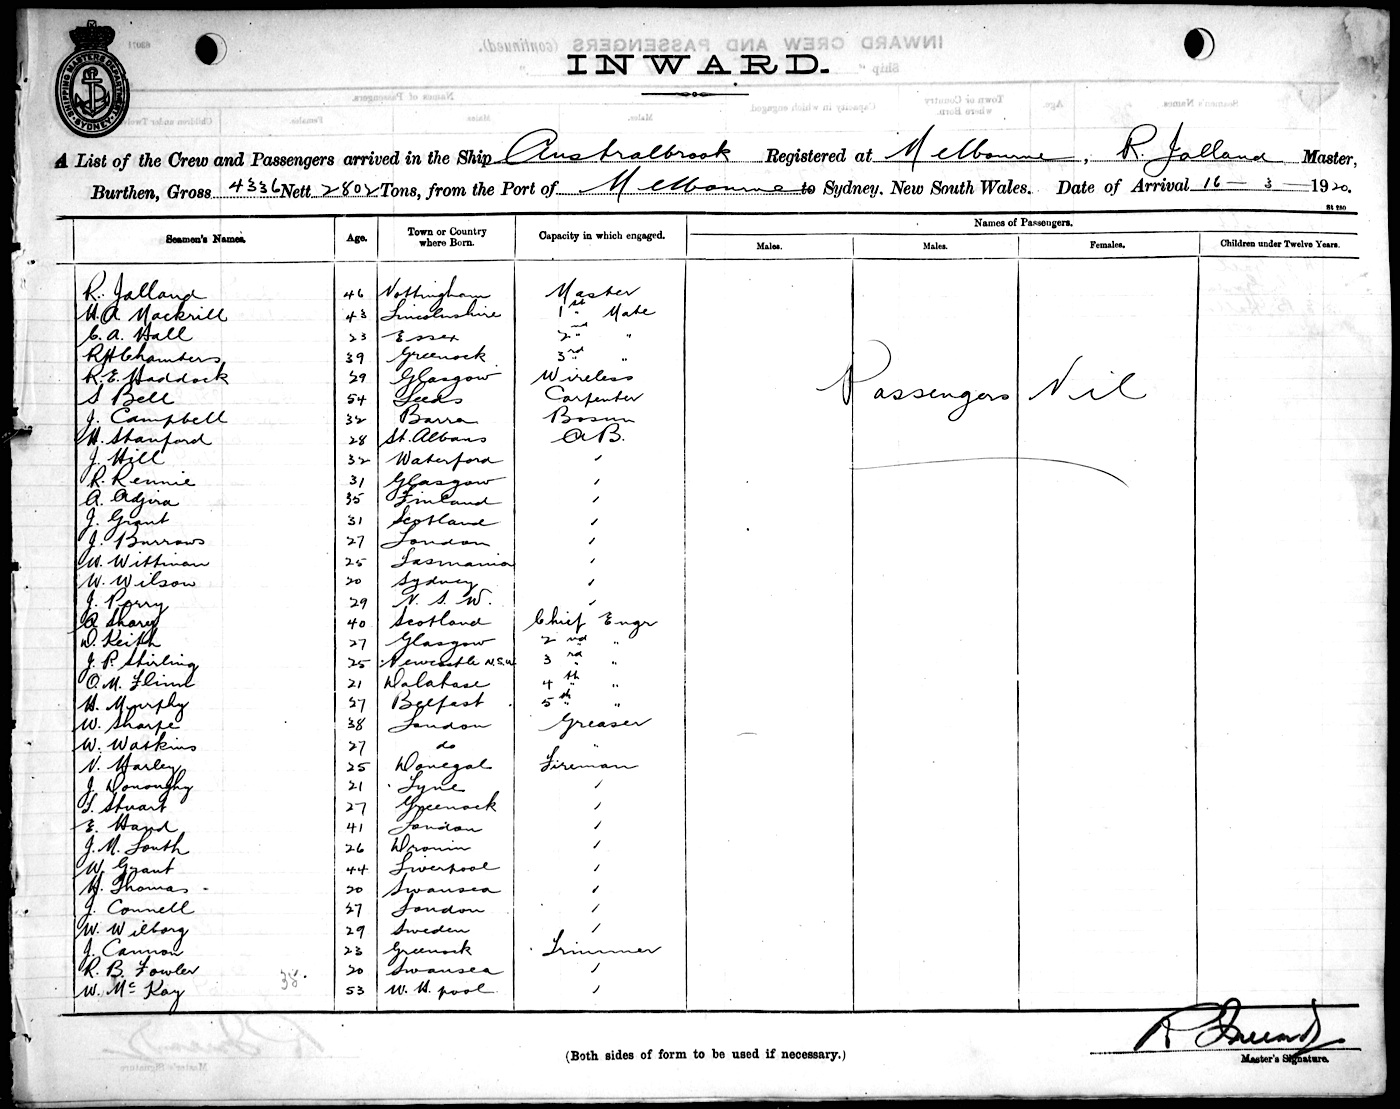 SHIPPING MASTERS DEPARTMENT SYDNEY
INWARD.
A List of the Crew and Passengers arrived in the Ship Australbrook Registered at Melbourne, R. Jalland Master,
Burthen, Gross 4336 Nett 2802 Tons, from the Port of Melbourne to Sydney, New South Wales. Date of Arrival 16 - 3 - 1920.
St 280
Seamen's Names. Age. Town or Country where Born. Capacity in which engaged. Names of Passengers.
Males. Males. Females. Children under Twelve Years.
R. Jalland 46 Nottingham Master
H. A. Mackrill 43 Lincolnshire 1st Mate
C. A. Hall 23 Essex 2nd "
R H Chambers 39 Greenock 3rd "
R. E. Haddock 29 Glasgow Wireless
S Bell 54 Leeds Carpenter
J. Campbell 32 Barra Bosun
Passengers Nil
H. Stanford 28 St. Albans A B.
J. Hill 32 Waterford "
R. Rennie 31 Glasgow "
A. 35 Finland "
J. Grant 31 Scotland "
J. Burrows 27 London "
W. Wittman 25 Tasmania "
W. Wilson 20 Sydney "
J. Perry 29 N. S. W. "
A Sharp 40 Scotland Chief Engr
D. Keith 27 Glasgow 2nd "
J. P. Stirling 25 Newcastle N.S.W 3rd "
O. M. 21 4th "
H. Murphy 27 Belfast 5th "
W. Sharpe 38 London Greaser
W. Watkins 27 do "
N. Harley 25 Donegal Fireman
J. Donoughy 21 Tyne "
T. Stuart 27 Greenock "
E. Hand 41 London "
J. M. South 26 "
W. Grant 44 Liverpool "
H. Thomas 20 Swansea "
J. Connell 27 London "
W. Wiborg 29 Sweden "
J. Cannon 23 Greenock Trimmer
R. B. Fowler 20 Swansea "
W. Mc Kay 53 W. H. pool "
38
R Jalland
Master's Signature.
(Both sides of form to be used if necessary.)